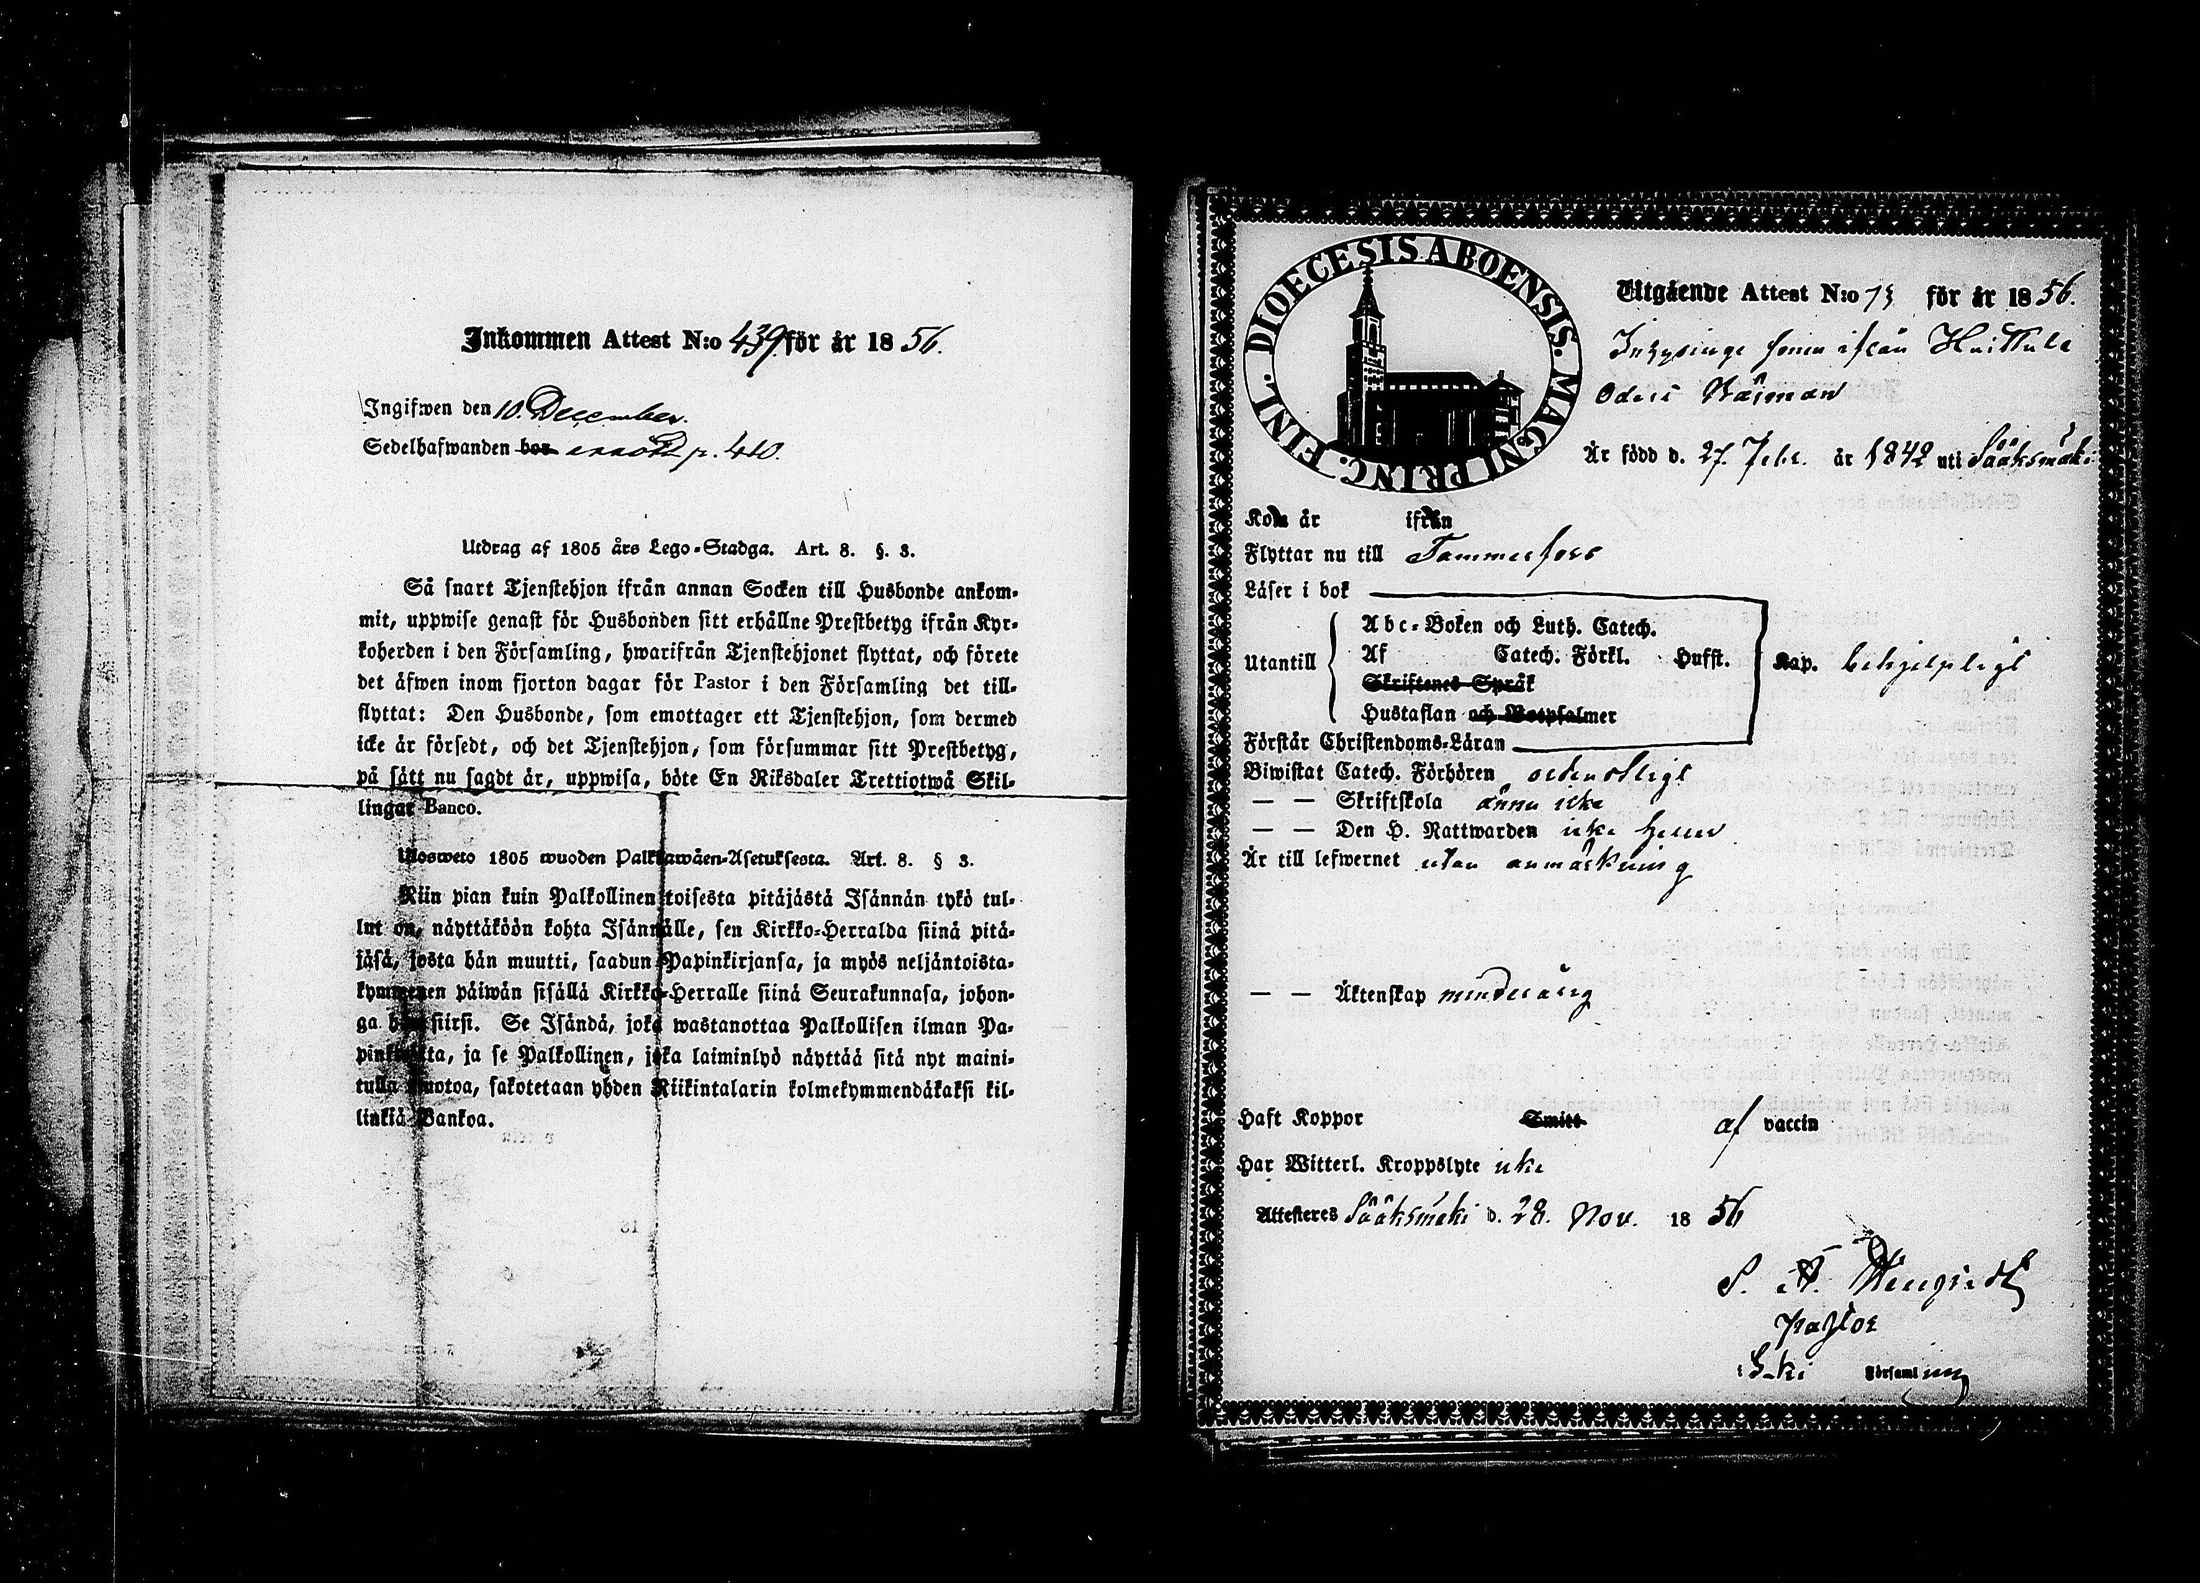 Inkommen Attest N:o 439. för år 1856.
Ingifwen den 10. December.
Sedelhafwanden bor p. 440.
Utdrag af 1805 års Lego-Stadga. Art. 8. §. 3.
Så snart Tjenstehjon ifrån annan Socken till Husbonde ankom-
mit, uppwise genast för Husbonden sitt erhållne Prestbetyg ifrån Kyr-
koherden i den Församling, hwarifrån Tjenstehjonet flyttat, och förete
det äfwen inom fjorton dagar för Pastor i den Församling det till-
flyttat: Den Husbonde, som emottager ett Tjenstehjon, som dermed
icke är försedt, och det Tjenstehjon, som försummar sitt Prestbetyg,
på sätt nu sagdt är, uppwisa, böte En Riksdaler Trettiotwå Skil-
lingar Banco.
Ulosweto 1805 wuoden Palkkawäen-Asetuksesta. Art. 8. § 3.
Niin pian kuin Palkollinen toisesta pitäjästä Isännän tykö tul-
lut on, näyttäköön kohta Isännälle, sen Kirkko-Herralda siinä pitä-
jäsä, josta hän muutti, saadun Papinkirjansa, ja myös neljäntoista-
kymmenen päiwän sisällä Kirkko-Herralle siinä Seurakunnasa, johon-
ga hän siirsi. Se Isändä, joka wastanottaa Palkollisen ilman Pa-
pinkirjatta, ja se Palkollinen, joka laiminlyö näyttää sitä nyt maini-
tulla muotoa, sakotetaan yhden Riikintalarin kolmekymmendäkaksi kil-
linkiä Bankoa.
DIOECESIS ABOENSIS. MAGNI PRINC. FINL.
Utgående Attest N:o 75 för år 1856.
sonen ifrån Huittula
Är född d. 27. Febr. år 1842 uti Sääksmäki
Kom år ifrån
Flyttar nu till Tammerfors
Läser i bok
Abc-Boken och Luth. Catech.
Utantill Af Catech. Förkl. Husst. Kap. behjelpligt
Skriftenes Språk
Hustaflan och Botpsalmer
Förstår Christendoms-Läran
Biwistat Catech. Förhören ordentligt
— — Skriftskola ännu icke
— — Den H. Nattwarden icke heller
Är till lefwernet utan anmärkning
— — Äktenskap minderårig
Haft Koppor Smitt af vaccin
Har Witterl. Kroppslyte icke
Attesteres Sääksmäki d. 28. Nov. 1856
Pastor
S-ki Församling